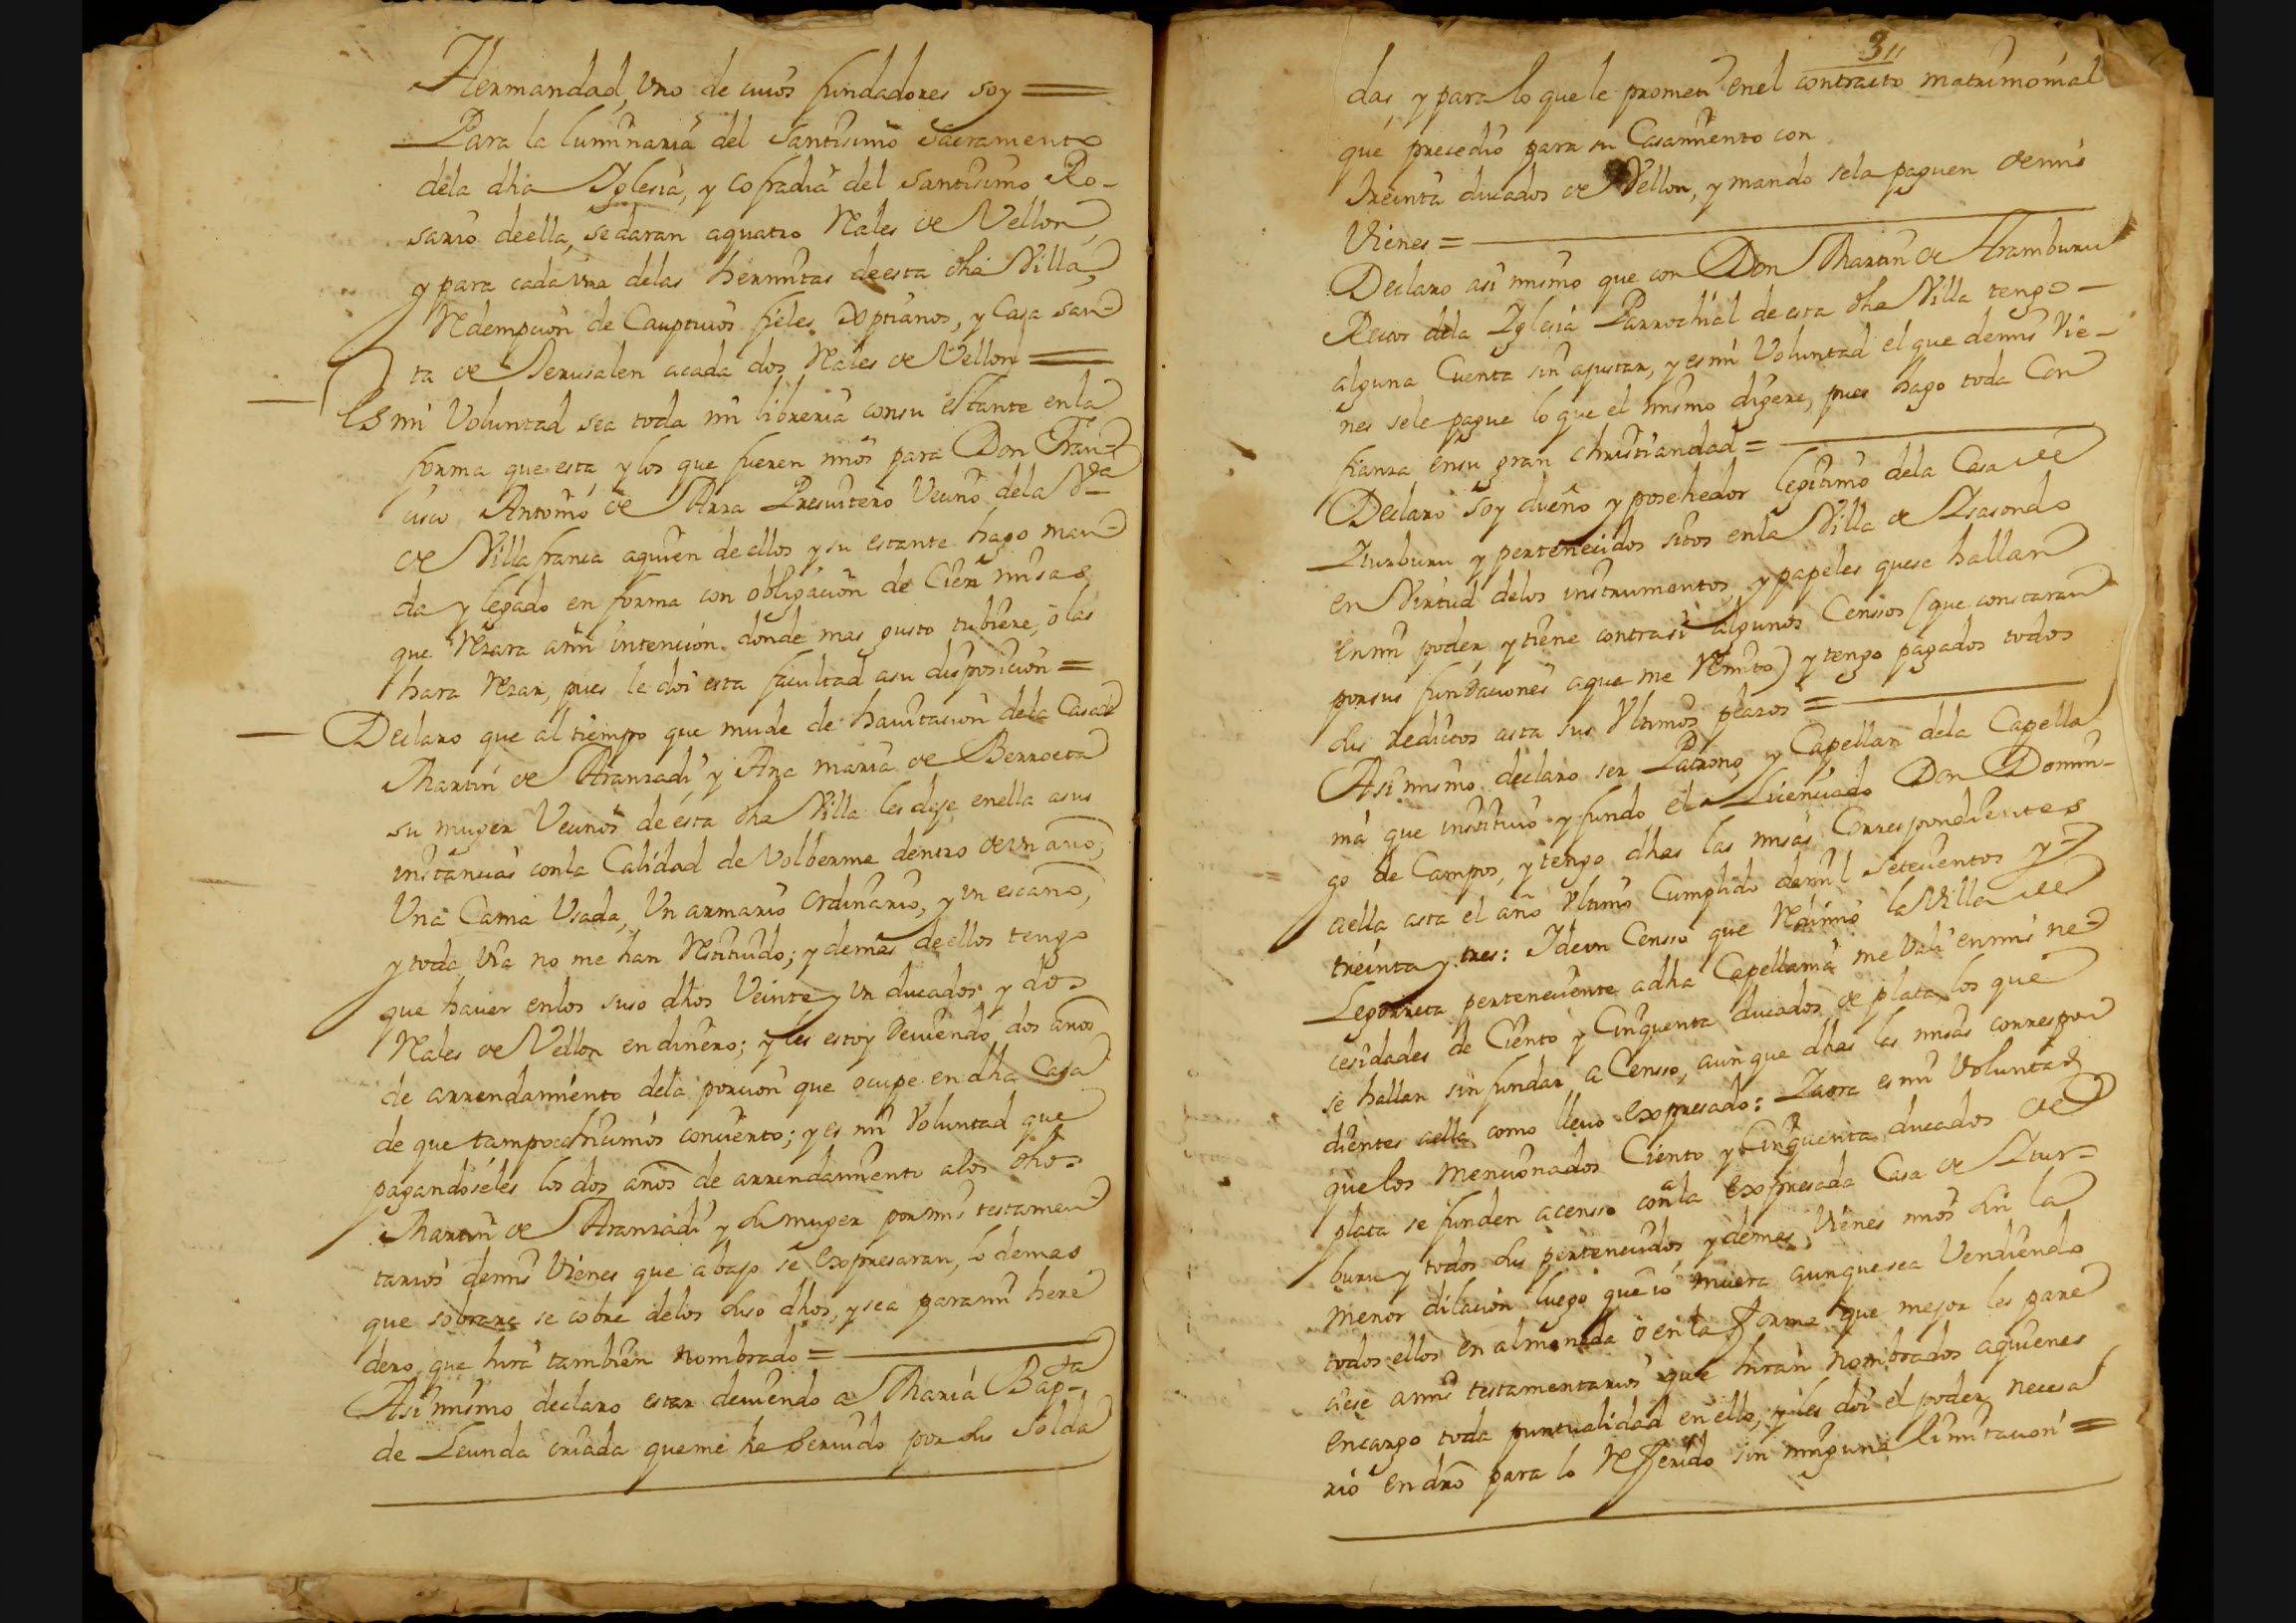 Hermandad, Uno de cuios fundadores soy =
Para la luminaria del Santisimo Sacramento
dela dha Yglesia, y Cofradia del Santisimo Ro-
sario deella, sedaran aquatro Reales de Vellon,
y para cada una delas hermitas deesta dha Villa,
Redempcion de Cauptivos fieles Xptianos, y Casa san-
ta de Jerusalen acada dos Reales de Vellon =
Es mi Voluntad sea toda mi libreria consu estante enla
forma que esta, y los que fueren mios para Don Fran-
cisco Antonio de Arza Presvitero Vecino dela Va
de Villafranca aquien deellos y su estante hago man-
da y legado en forma con obligacion de Cien misas
que Rezara ami intencion donde mas gusto tubiere, o las
hara Rezar, pues le doi esta facultad asu disposicion =
Declaro que al tiempo que mude de havitacion dela Casa de
Martin de Aranzadi y Ana maria de Berroeta
su muger Vecinos de esta dha Villa les deje enella asus
instancias conla Calidad de Volberme dentro de un año,
Una Cama Usada, Un armario Ordinario, y un escaño,
y toda via no me han Restituido; y demas deellos tengo
que haver enlos suso dhos Veinte y un ducados y dos
Reales de Vellon en dinero; y les estoy Deviendo dos años
de arrendamiento dela porcion que ocupe en dha Casa
de que tampoco hicimos convento; y es mi Voluntad que
pagandoseles los dos años de arrendamiento alos dhos
Martin de Aranzadi y su muger por mis testamen-
tarios demis Vienes que abajo se Expresaran, lo demas
que sobrare se cobre delos suso dhos, y sea para mi here-
dero, que hira tambien nombrado =
Asi mismo declaro estar deviendo a Maria Bapta
de Leunda criada que me ha servido por sus Solda-
311
das, y para lo que le prometi enel contracto matrimonial
que precedio para su Casamiento con
treinta ducados de Vellon, y mando sela paguen demis
Vienes =
Declaro asi mismo que con Don Martin de Aramburu
Rector dela Yglesia Parrochial de esta dha Villa tengo
alguna Cuenta sin ajustar, y es mi Voluntad el que demis Vie-
nes sele pague lo que el mismo digere, pues hago toda Con
fianza ensu gran christiandad =
Declaro soy dueño y posehedor legitimo dela Casa de
Yturburu y pertenecidos sitos enla Villa de Ysasondo
en Virtud delos instrumentos, y papeles quese hallan
en mi poder, y tiene contrasi algunos Censsos (que constaran
por sus fundaciones aque me Remito) y tengo pagados todos
sus Reditos asta sus Ultimos plazos =
Asi mismo declaro ser Patrono, y Capellan dela Capella
nia que instituio y fundo el Licenciado Don Domin-
go de Campos, y tengo dhas las misas Correspondientes
aella asta el año Ultimo Cumplido demil setecientos y
treinta y tres: Ydeun Censso que Redimio la Villa de
Legorreta perteneciente adha Capellania me Vali enmis ne-
cesidades de Ciento y Cinquenta ducados de plata, los que
se hallan sin fundar a Censso, aunque dhas las misas correspon
dientes aella como llevo Expresado: Yaora es mi Voluntad
que los mencionados Ciento y Cinquenta ducados de
plata se funden acensso contra la Expresada Casa de Ytur-
buru y todos sus pertenecidos, y demas Vienes mios sin la
menor dilacion luego que io muera aunque sea Vendiendo
todos ellos en almoneda o en la forma que mejor les pare
ciese amis testamentarios que hiran nombrados aquienes
encargo toda puntualidad en ello, y les doi el poder necesa
rio en dro para lo Referido sin ninguna limitacion =